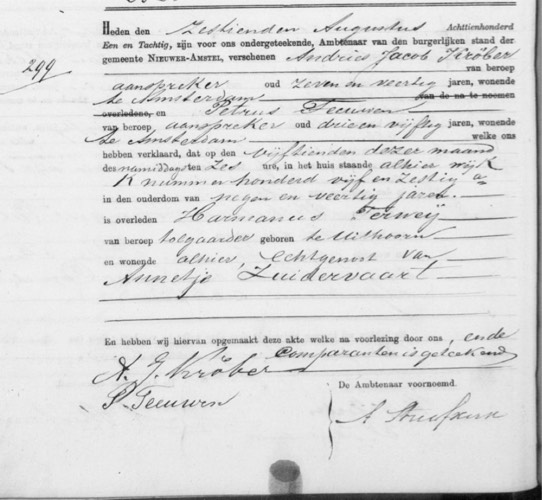 Heden den Zestienden Augustus Achttienhonderd
Een en Tachtig, zijn voor ons ondergeteekende, Ambtenaar van den burgerlijken stand der
gemeente NIEUWER-AMSTEL, verschenen Andries Jacob Kröber
299
van beroep
aanspreker oud zeven en veertig jaren, wonende
te Amsterdam van de na te noemen
overledene, en Petrus Teeuwen
van beroep aanspreker oud drie en vijftig jaren, wonende
te Amsterdam welke ons
hebben verklaard, dat op den Vijftienden dezer maand
des namiddags ten Zes ure, in het huis staande alhier wijk
K nummer honderd vijf en zestig a
in den ouderdom van negen en veertig jaren.
is overleden Harmanus Terweij
van beroep tolgaarder geboren te Uithoorn
en wonende alhier, echtgenoot van
Annetje Zuidervaart
En hebben wij hiervan opgemaakt deze akte welke na voorlezing door ons, en de
comparanten is geteekend
A. J. Kröber
De Ambtenaar voornoemd.
P. Teeuwen
A